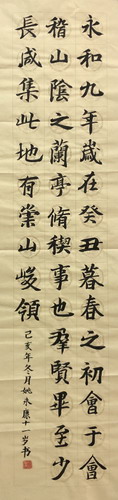 永和九年歲在癸丑暮春之初會于會
稽山陰之蘭亭脩稧事也羣賢畢至少
長咸集此地有崇山峻領
己亥年冬月姚永康十一岁书